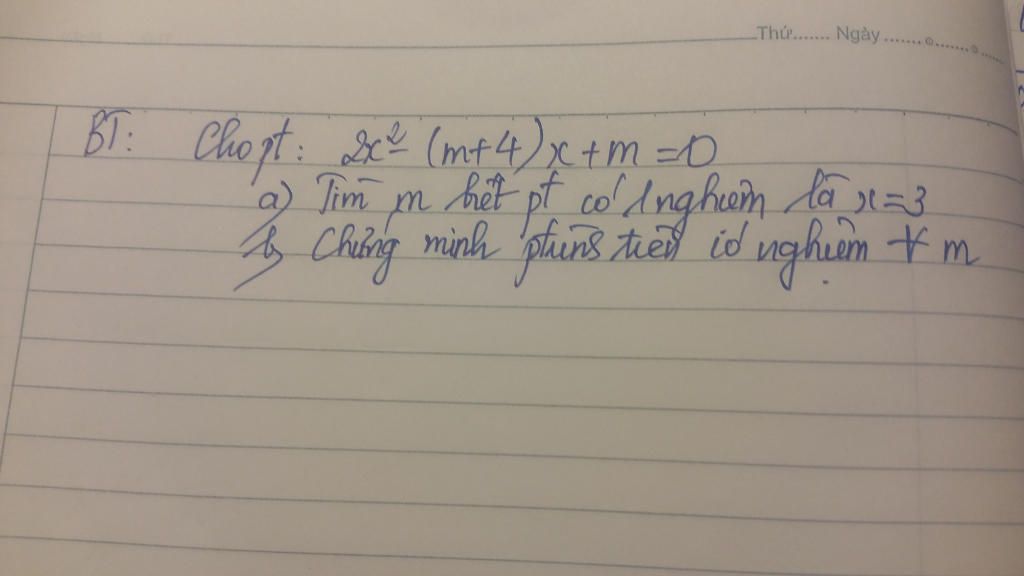 Thứ....... Ngày.......
BT: Cho pt: 2x² - (m+4)x + m = 0
a) Tìm m biết pt có 1 nghiệm là x=3
b) Chứng minh có nghiệm ∀ m